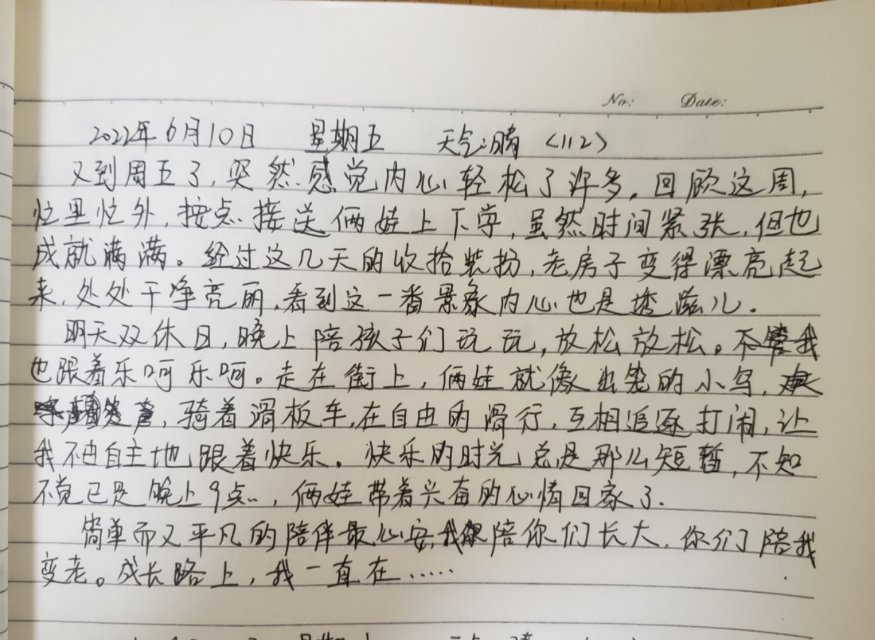 No: Date:
2022年6月10日 星期五 天气:晴 (112)
又到周五了,突然感觉内心轻松了许多。回顾这周,
忙里忙外,按点接送俩娃上下学,虽然时间紧张,但也
成就满满。经过这几天的收拾装扮,老房子变得漂亮起
来,处处干净亮丽,看到这一番景象内心也是透溢儿.
明天双休日,晚上陪孩子们玩玩,放松放松。我
也跟着乐呵乐呵。走在街上,俩娃就像出笼的小鸟,
骑着滑板车,在自由的滑行,互相追逐打闹,让
我不由自主地跟着快乐。快乐的时光总是那么短暂,不知
不觉已是晚上9点..,俩娃带着兴奋的心情回家了.
简单而又平凡的陪伴最心安,我陪你们长大,你们陪我
变老。成长路上,我一直在.....